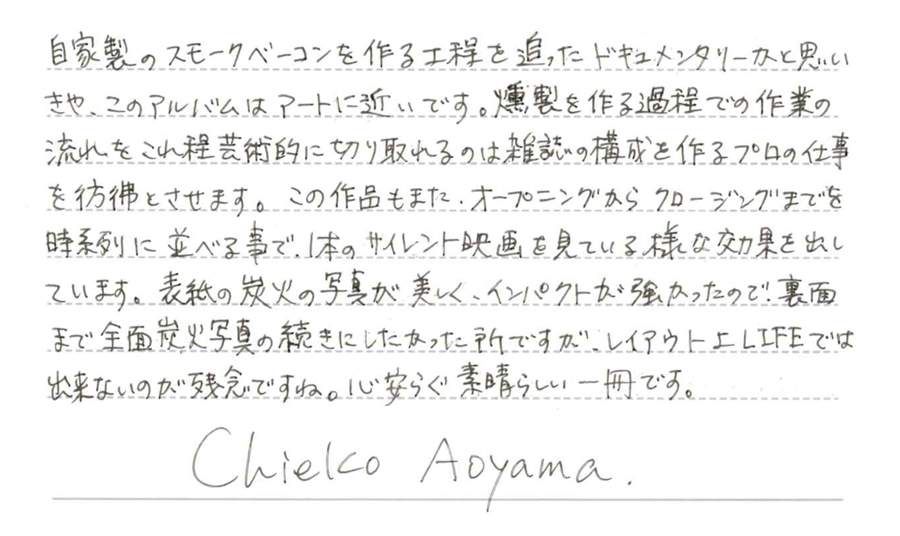 自家製のスモークベーコンを作る工程を追ったドキュメンタリーかと思い
きや、このアルバムはアートに近いです。燻製を作る過程での作業の
流れをこれ程芸術的に切り取れるのは雑誌の構成を作るプロの仕事
を彷彿とさせます。この作品もまた、オープニングからクロージングまでを
時系列に並べる事で、1本のサイレント映画を見ている様な効果を出し
ています。表紙の炭火の写真が美しく、インパクトが強かったので、裏面
まで全面炭火写真の続きにしたかった所ですが、レイアウト上LIFEでは
出来ないのが残念ですね。心安らぐ素晴らしい一冊です。
Chieko Aoyama.